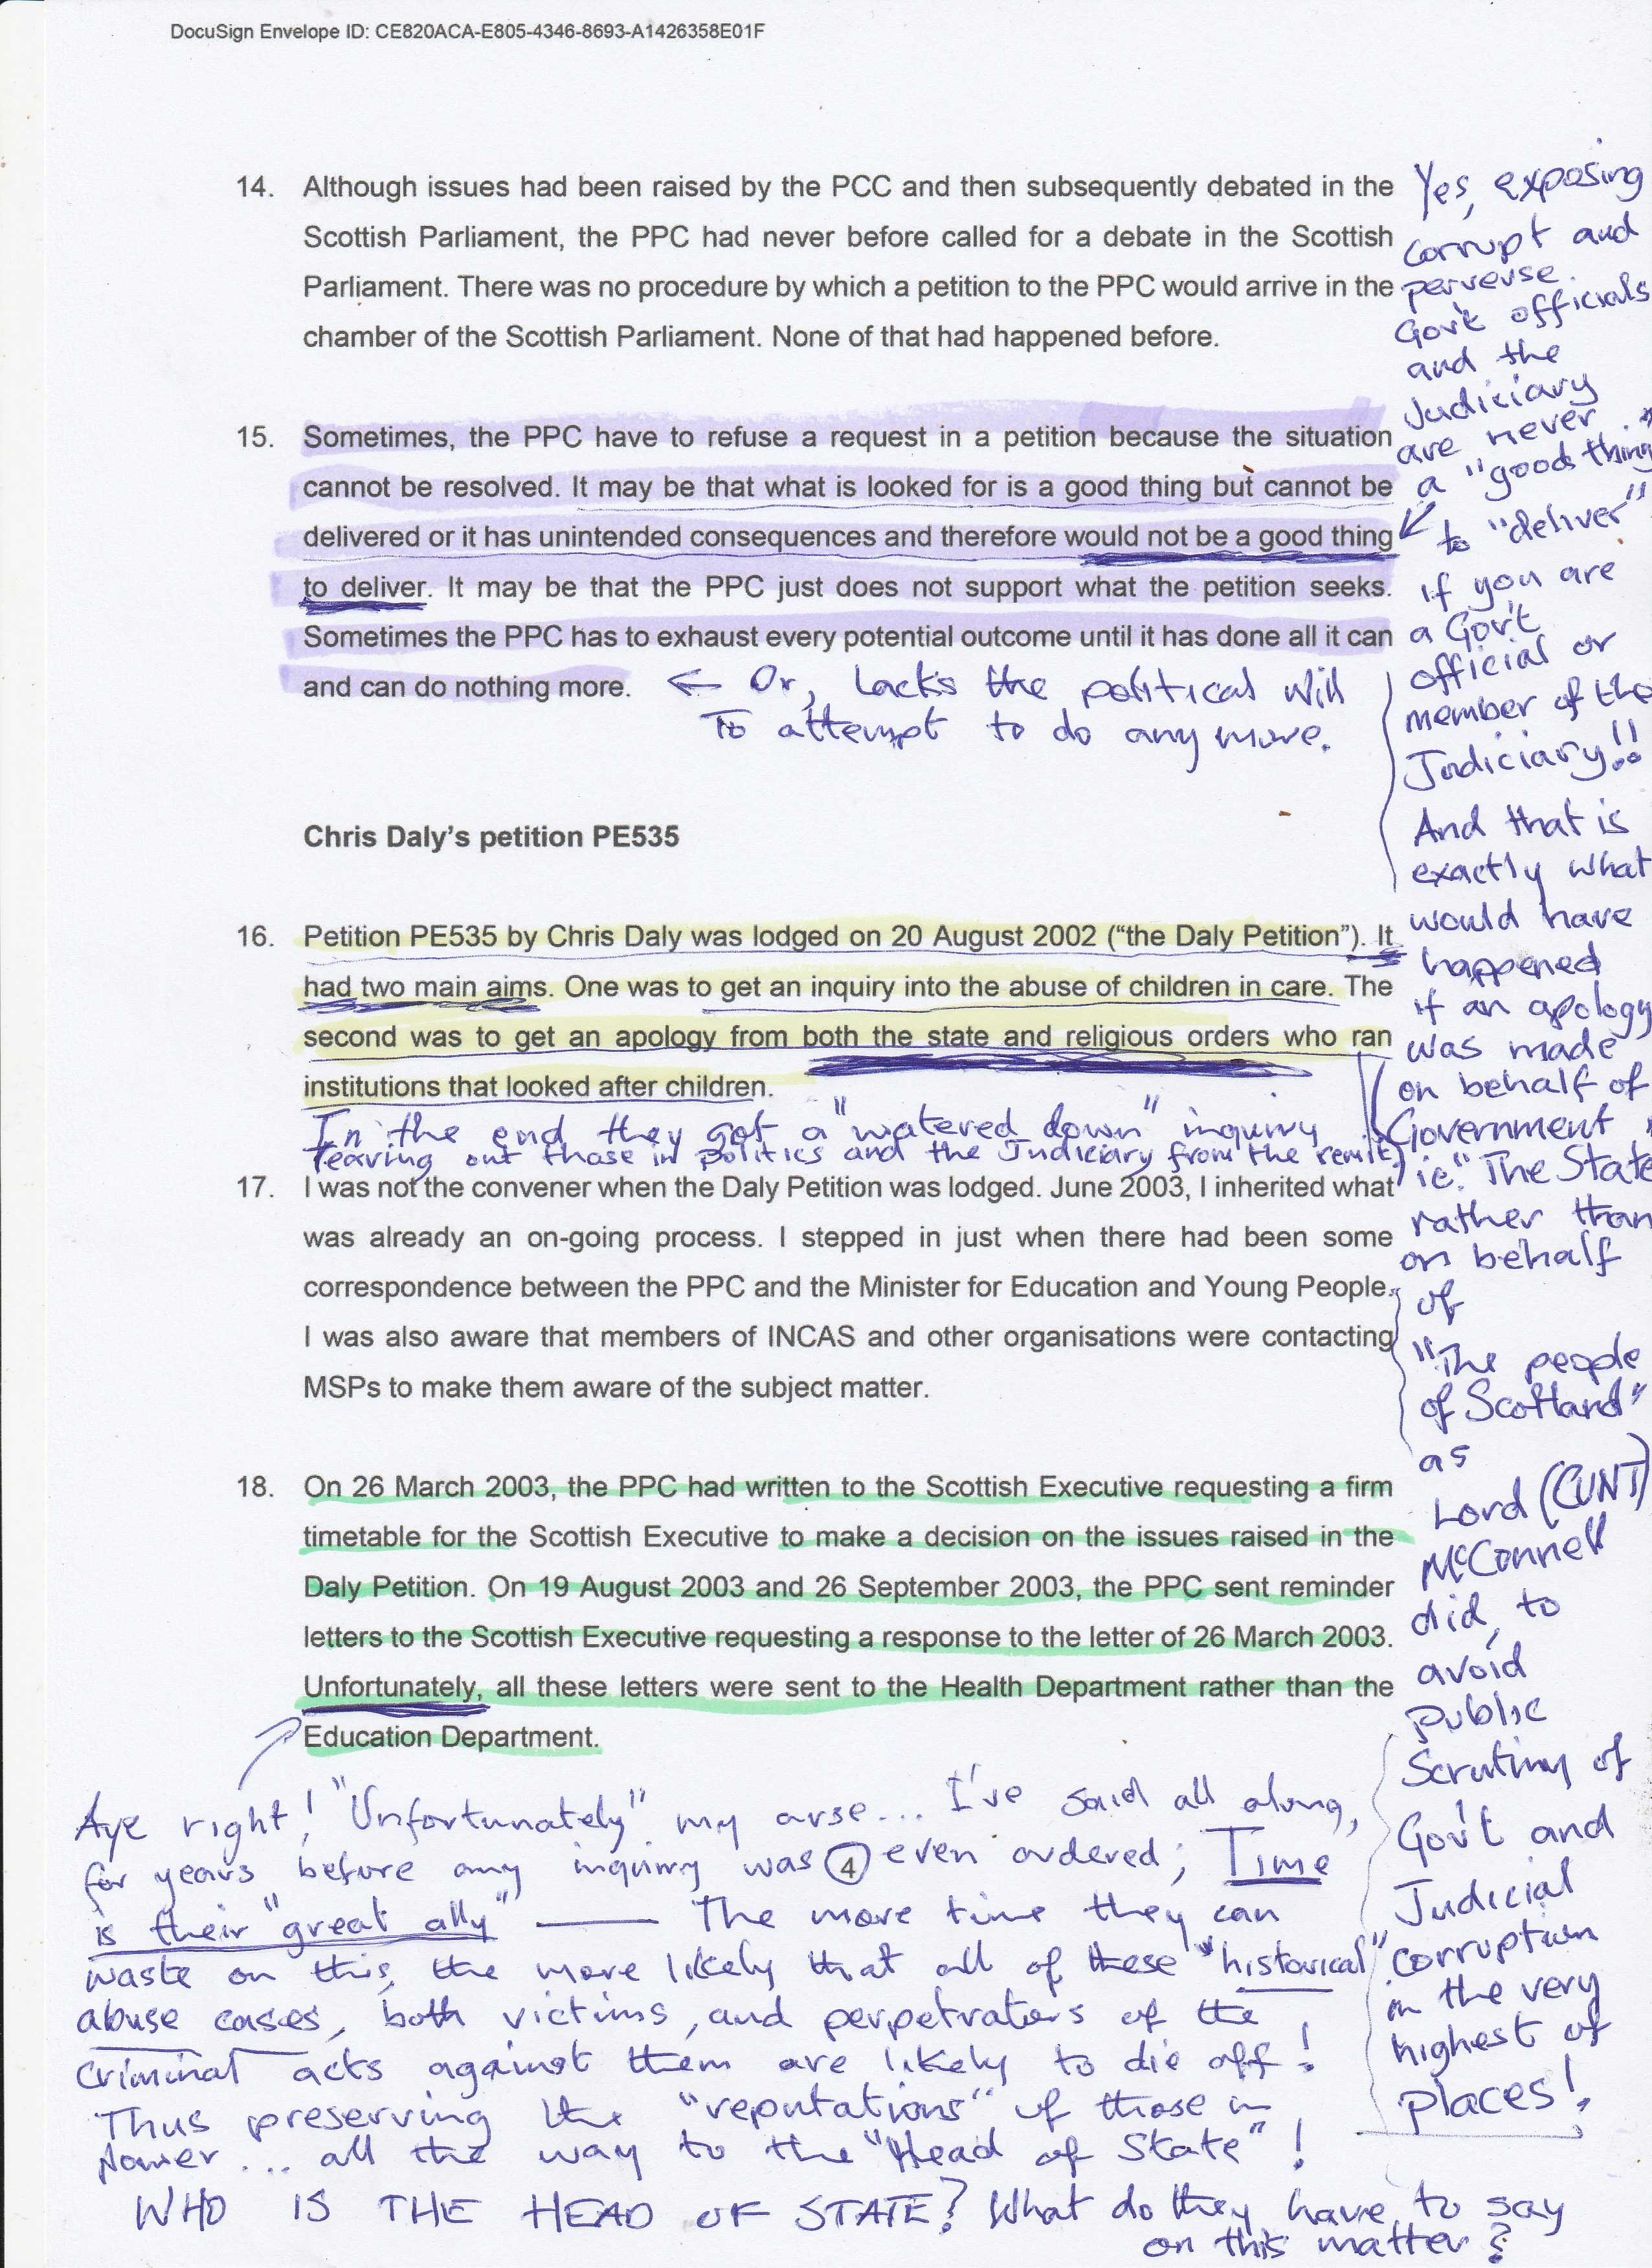 DocuSign Envelope ID: CE820ACA-E805-4346-8693-A1426358E01F
14. Although issues had been raised by the PCC and then subsequently debated in the
Scottish Parliament, the PPC had never before called for a debate in the Scottish
Parliament. There was no procedure by which a petition to the PPC would arrive in the
chamber of the Scottish Parliament. None of that had happened before.
15. Sometimes, the PPC have to refuse a request in a petition because the situation
cannot be resolved. It may be that what is looked for is a good thing but cannot be
delivered or it has unintended consequences and therefore would not be a good thing
to deliver. It may be that the PPC just does not support what the petition seeks.
Sometimes the PPC has to exhaust every potential outcome until it has done all it can
and can do nothing more.
← Or, lacks the political will
To attempt to do any more.
Chris Daly's petition PE535
16. Petition PE535 by Chris Daly was lodged on 20 August 2002 (“the Daly Petition”). It
had two main aims. One was to get an inquiry into the abuse of children in care. The
second was to get an apology from both the state and religious orders who ran
institutions that looked after children.
In the end they got a "watered down" inquiry
leaving out those in politics and the Judiciary from the remit)
17. I was not the convener when the Daly Petition was lodged. June 2003, I inherited what
was already an on-going process. I stepped in just when there had been some
correspondence between the PPC and the Minister for Education and Young People.
I was also aware that members of INCAS and other organisations were contacting
MSPs to make them aware of the subject matter.
18. On 26 March 2003, the PPC had written to the Scottish Executive requesting a firm
timetable for the Scottish Executive to make a decision on the issues raised in the
Daly Petition. On 19 August 2003 and 26 September 2003, the PPC sent reminder
letters to the Scottish Executive requesting a response to the letter of 26 March 2003.
Unfortunately, all these letters were sent to the Health Department rather than the
Education Department.
Yes, exposing
corrupt and
perverse
Gov't officials
and the
Judiciary
are never
a "good thing"
to "deliver"
if you are
a Gov't
official or
member of the
Judiciary!!
And that is
exactly what
would have
happened
if an apology
was made
on behalf of
Government
ie. "The State
rather than
on behalf
of
"The people
of Scotland"
as
Lord (CUNT)
McConnell
did, to
avoid
public
scrutiny of
Gov't and
Judicial
corruption
in the very
highest of
places!
Aye right! "Unfortunately" my arse... I've said all along,
for years before any inquiry was even ordered; Time
4
is their "great ally" — The more time they can
waste on this, the more likely that all of these "historical"
abuse cases, both victims, and perpetrators of the
criminal acts against them are likely to die off!
Thus preserving the "reputations" of those in
power... all the way to the "Head of State"!
WHO IS THE HEAD OF STATE? What do they have to say
on this matter?